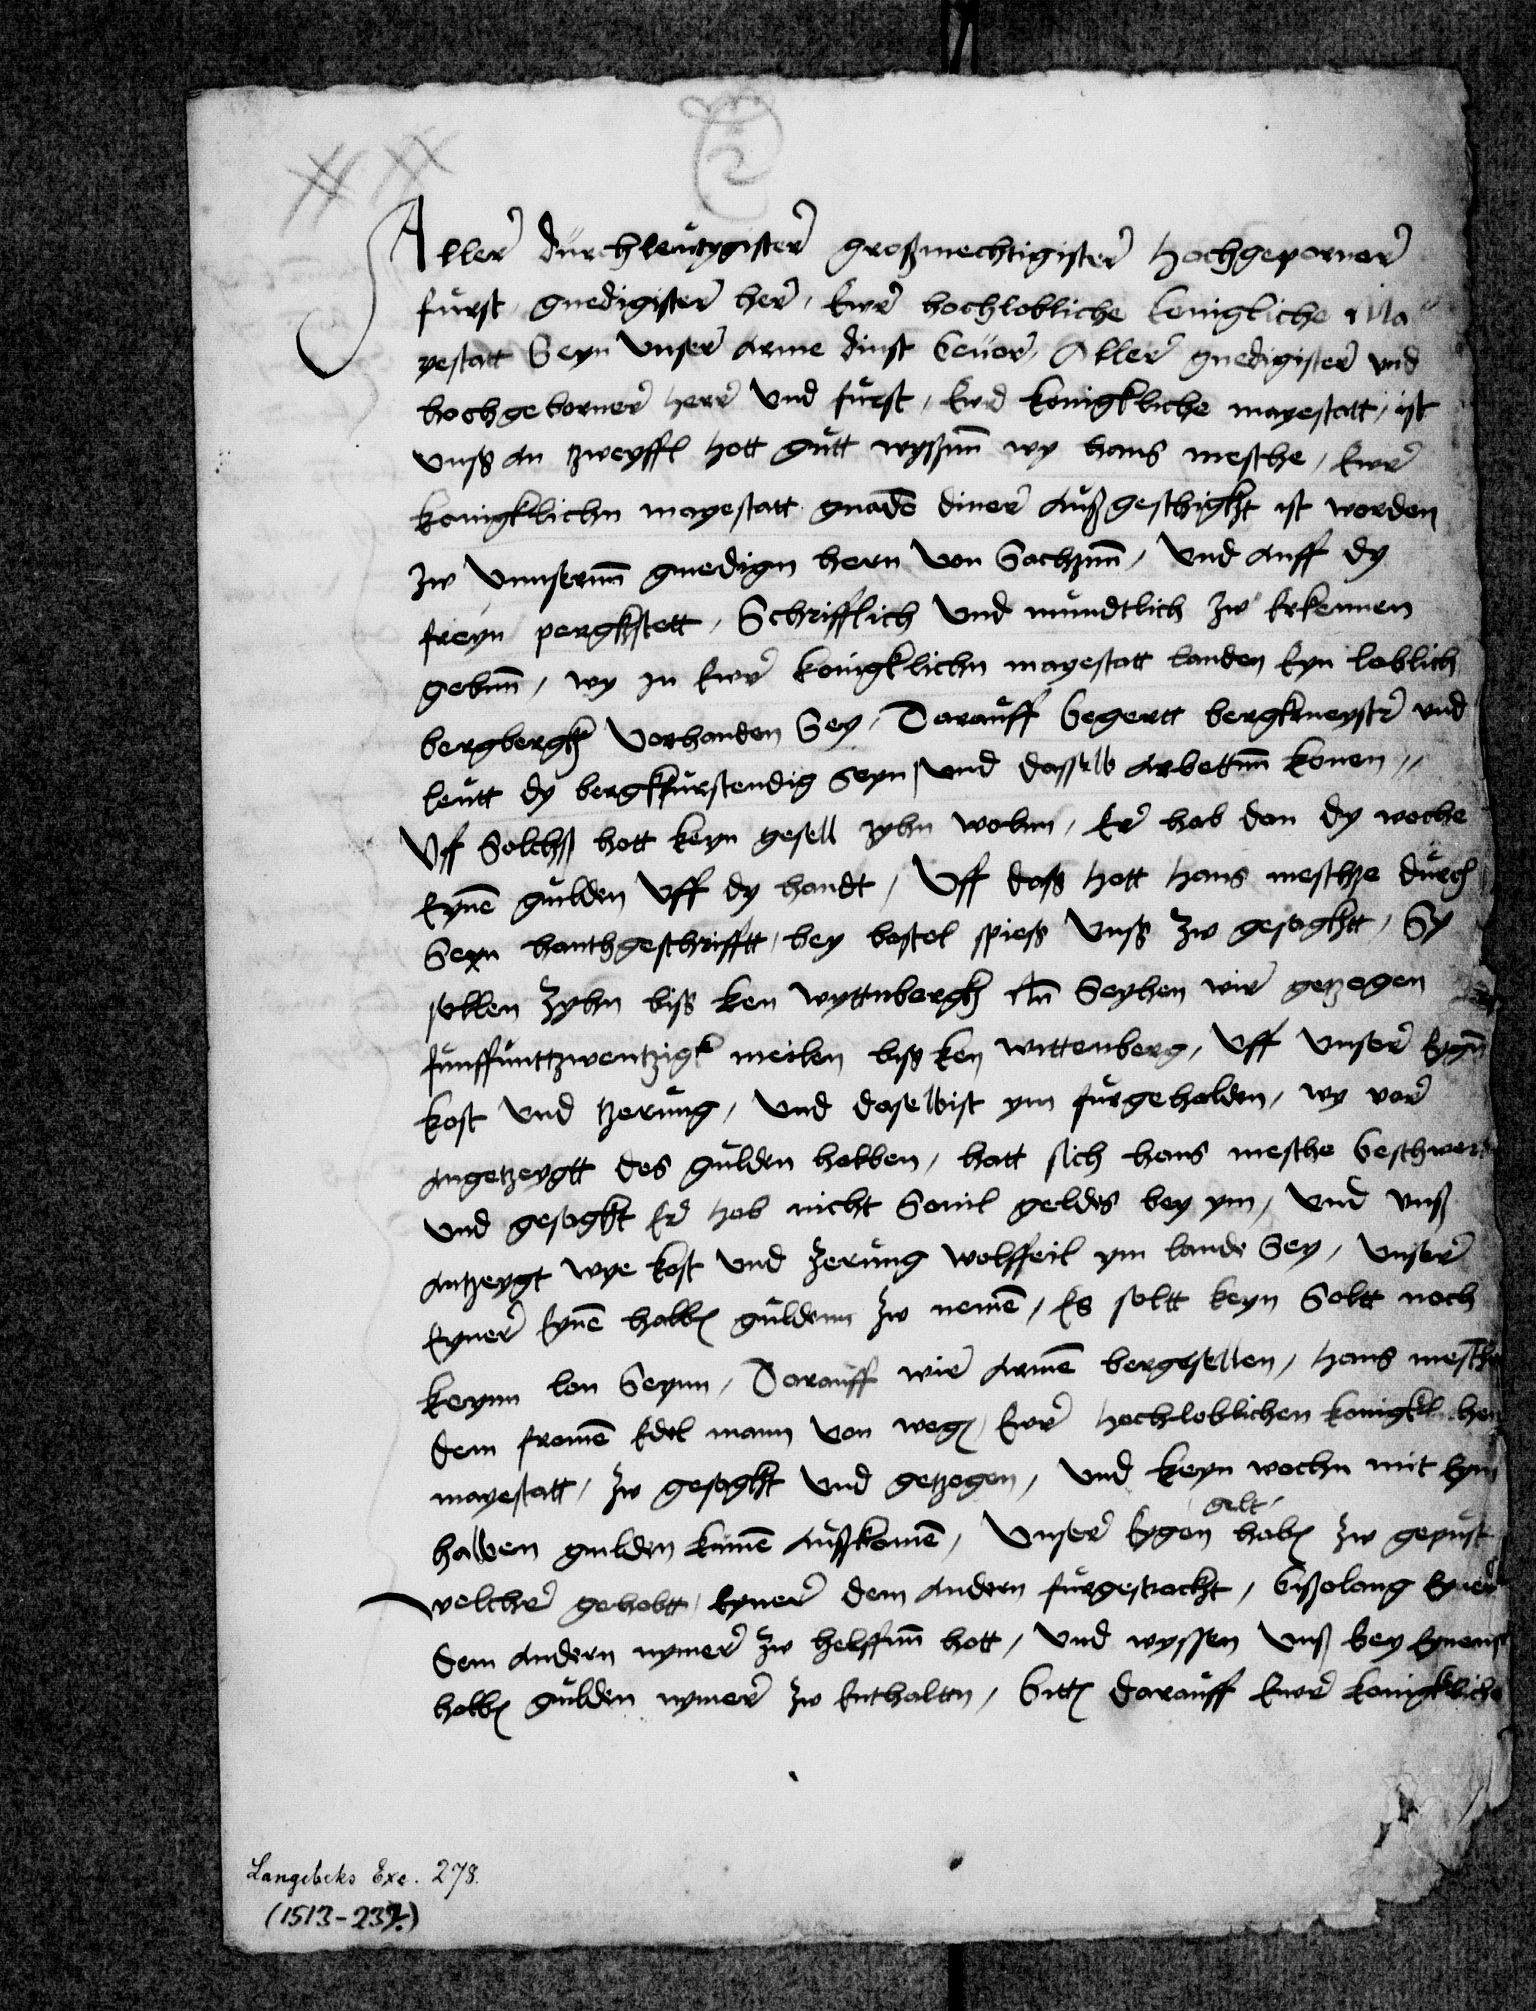 Aller durchleutzgister großmechtigister Hochgeporner
furst, gnedigister her, Ewr hochlobliche konigliche Ma
yestatt Seyn Unser arme dinst beuor, Aller gnedigister und
hochgeborner Herr Und furst, Ewr konigkliche mayestatt, ist
unß an tzweyffl Hott gutt wyßnn wy hans mesthe, Ewr
konigklichn mayestatt gnade diner außgeschigkt ist worden
zw Unnsernn gnedign hern Von Sachznn, Und auff dy
freyn pergkstett, Schrifflich Und mundtlich zw Erkennen
gebnn, wy in Ewr konigklichn mayestatt landen Eyn loblich
bergbergk Vorhanden Sey, Darauff begertt bergkmeystr und
leutt dy bergkfurstendig Seyn, Und dasselb arbettnn konen,,
Uff Solchß hott keyn gesell zyhn wolnn, Er hab dan dy woche
Eyne gulden Uff dy handt, Uff daß Hott Hans meschze durch
Seyn hanthgeschrifftt, bey bastel spieß Unß zw gesagktt, Sy
sollen zyhn biß ken wyttnbergk Seyhen wir getzogen
funffunttzwentzigk meilen biß ken wittenberg, Uff Unser Eygn
kost Und tzerung, Und daselbist ym furgehalden, wy vor
angetzeygtt des gulden halben, hatt sich hans mesthe beschwerd
und gesagkt Er Hab nicht Souil geldes bey ym, Und unß
antzeygt wye kost Und Zerung wolffeil ym lande Sey, Unser
Eyner Eyne halb gulden zw neme, Es soltt keyn Soltt noch
keynn lon Seynn, Darauff wir arme bergesellen, Hans mesth
dem frome Edel mann Von weg Ewr Hochloblichen konigklichen
mayestatt, zw gesagkt Und getzogen, Und keyn wochn mit Eym
halben gulden kune außkome, Unser Eygen gelt hab zw gepust
welcher gehabtt, Eyner dem andern furgestrackt, bißolang Eyner
dem andern nymer zw helffnn hott, Und wyssen Unß bey Eynem
halb gulden nymer zw Enthaltn, bitt darauff Ewr konigkliche
Langebeks Exc. 278.
(1513-23?.)